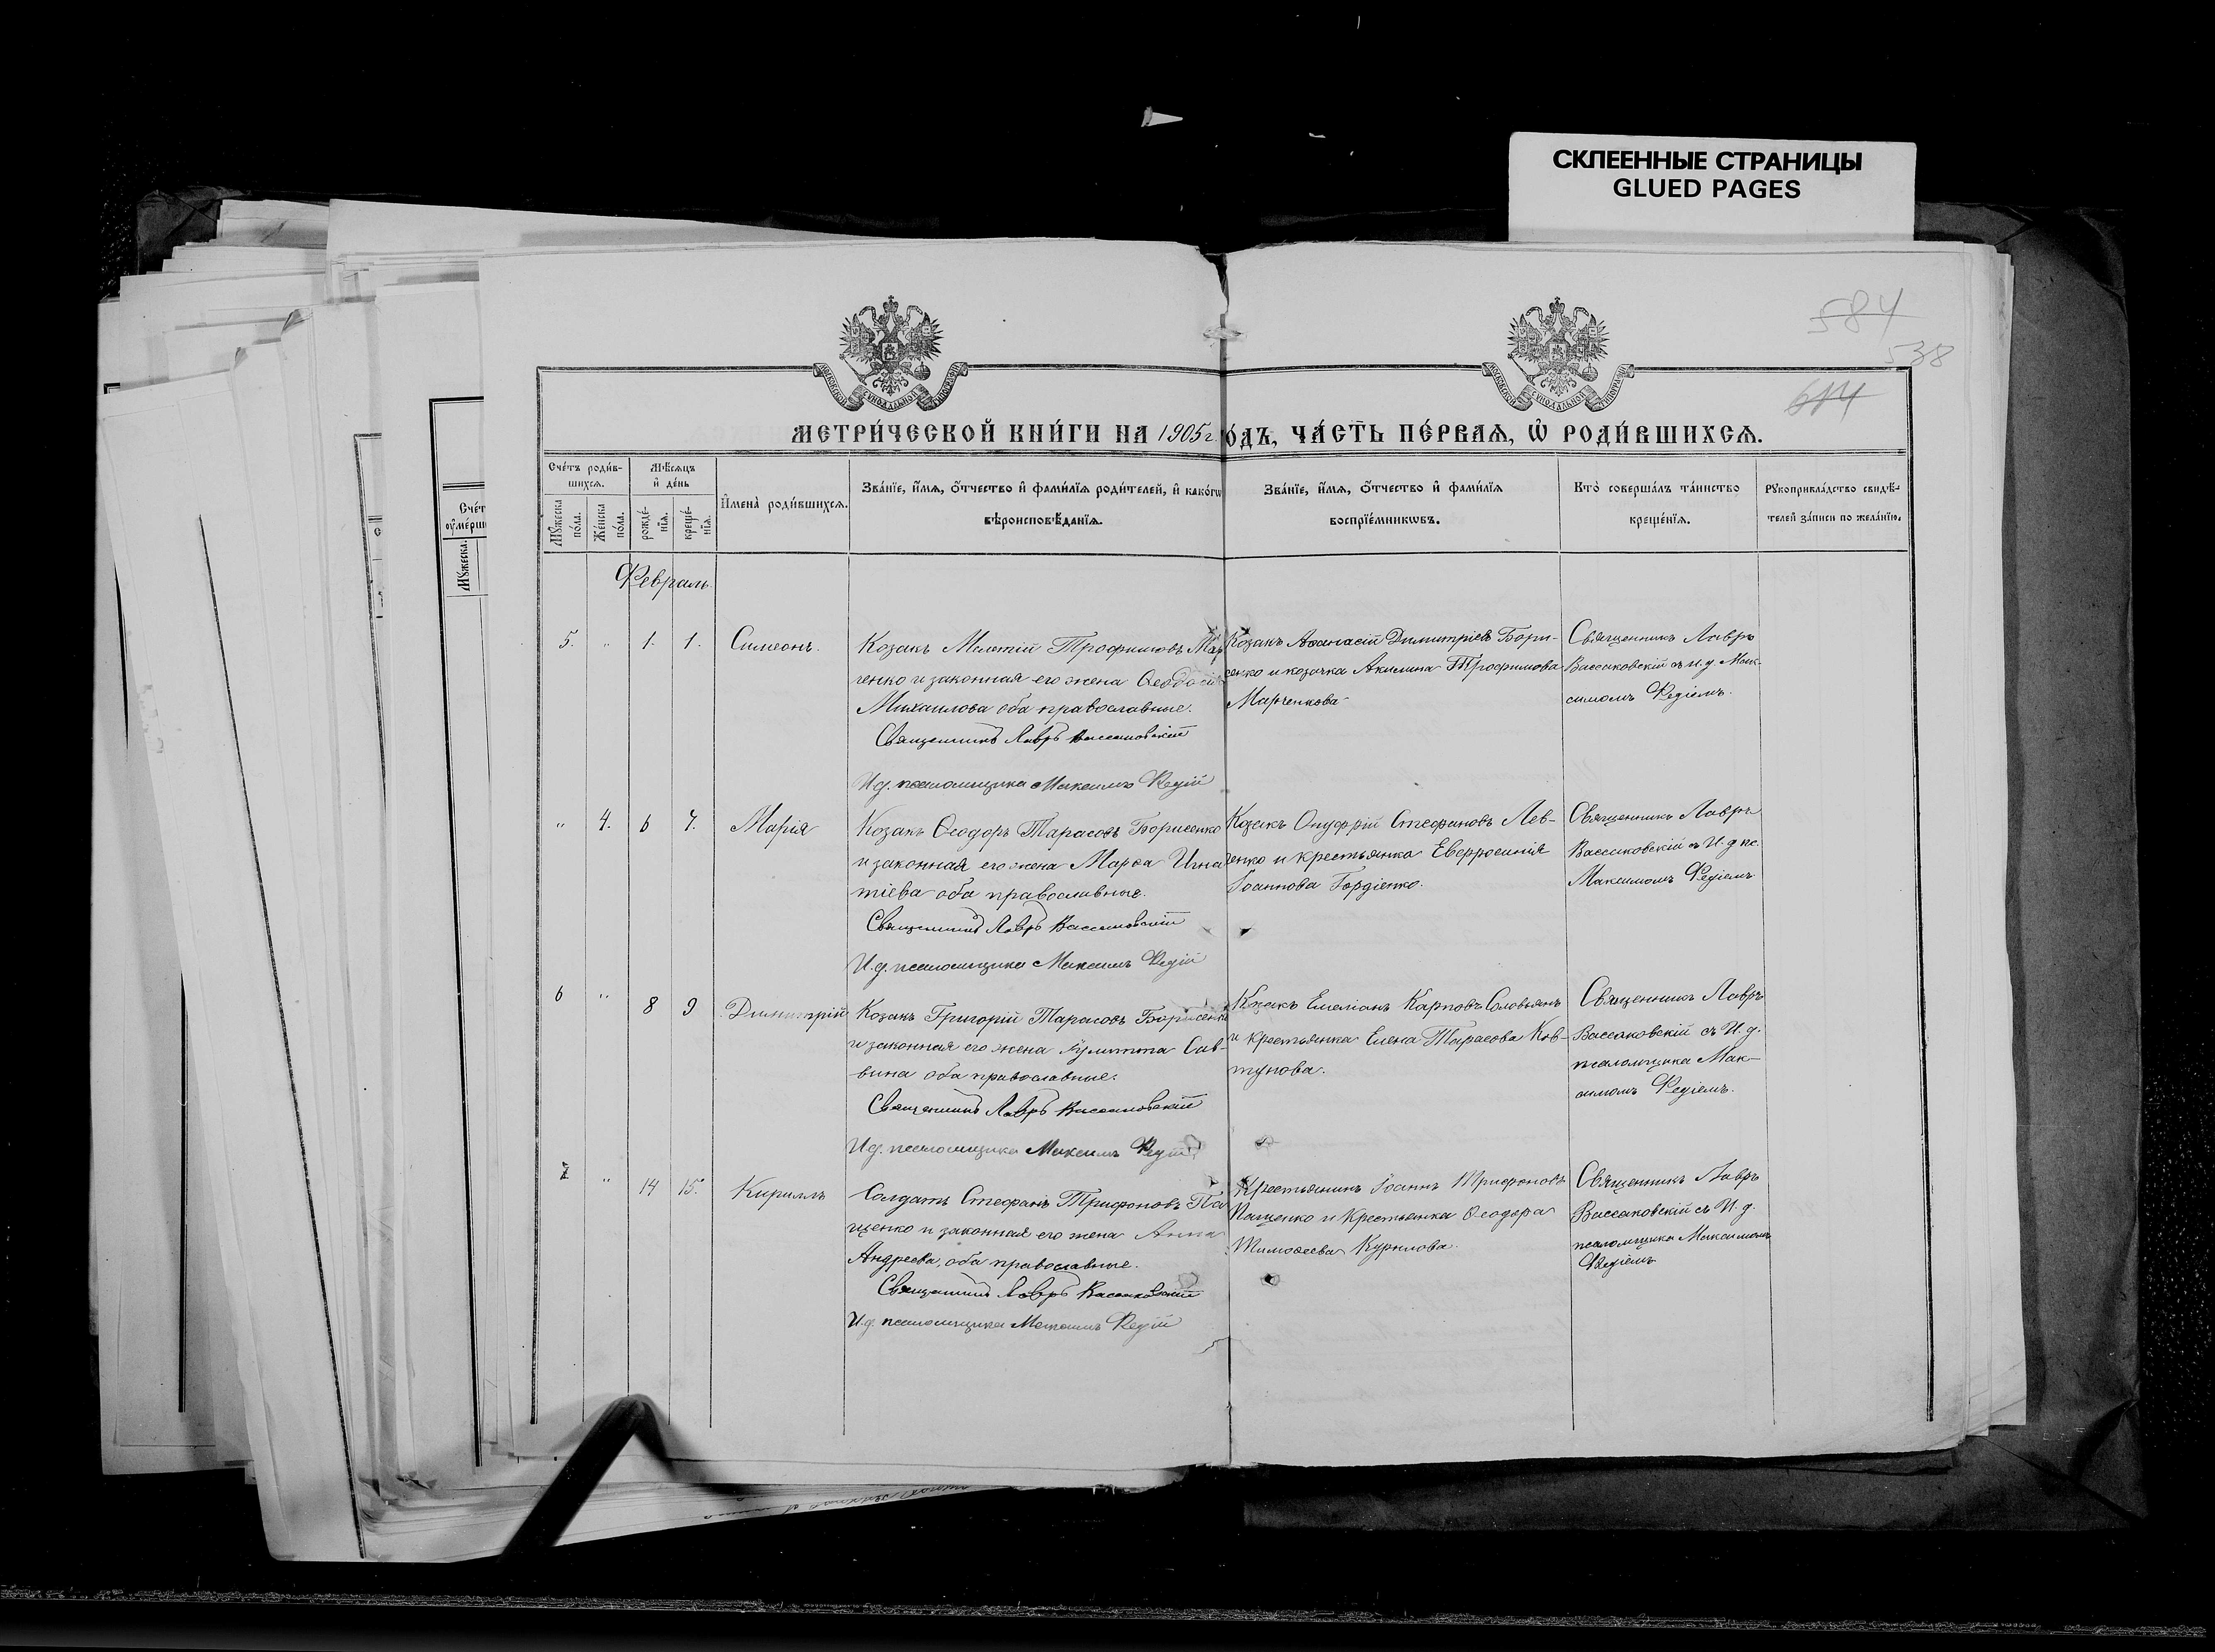 СКЛЕЕННЫЕ СТРАНИЦЫ
GLUED PAGES
584
538
614
МЕТРИ́ЧЕСКОЙ КНИ́ГИ НА 1905 г. ГО́ДЪ, ЧА́СТЬ ПЕ́РВАѦ, Ѽ РОДИ́ВШИХСѦ.
Сче́тъ роди́в-
шихсѧ.
Мꙋ́жеска
по́ла.
Же́нска
по́ла.
Мѣ́сѧцъ
и҆ де́нь
рожде́-
нїѧ.
креще́-
нїѧ.
И҆мена̀ роди́вшихсѧ.
Зва́нїе, и҆́мѧ, ѻ҆́тчество и҆ фами́лїѧ роди́телей, и҆ како́гѡ
вѣроисповѣ́данїѧ.
Зва́нїе, и҆́мѧ, ѻ҆́тчество и҆ фами́лїѧ
воспрїе́мникѡвъ.
Кто̀ соверша́лъ та́инство
креще́нїѧ.
Рꙋкоприкла́дство свидѣ́-
телей за́писи по жела́нїю.
Февраль.
5. " 1. 1. Симеонъ.
Козакъ Мелетій Трофимовъ Мар
ченко и законная его жена Ѳеодосія
Михаилова оба православные.
Священникъ Лавръ Вассаковскій
И. д. псаломщика Максимъ Федій
Козакъ Аѳанасій Димитріевъ Бори-
сенко и козачка Акилина Трофимова
Марченкова
Священникъ Лавръ
Вассаковскій съ и. д. Мак-
симомъ Федіемъ.
" 4. 6 7. Марія
Козакъ Ѳеодоръ Тарасовъ Борисенко
и законная его жена Марѳа Игна
тіева оба православные.
Священникъ Лавръ Вассаковскій
И. д. псаломщика Максимъ Федій
Козакъ Онуфрій Стефановъ Лев-
ченко и крестьянка Евфросинія
Іоаннова Гордіенко.
Священникъ Лавръ
Вассаковскій съ И. д. пс.
Максимомъ Федіемъ
6 " 8 9 Димитрій
Козакъ Григорій Тарасовъ Борисенко
и законная его жена Іулитта Сав-
вина оба православные.
Священникъ Лавръ Вассаковскій
И. д. псаломщика Максимъ Федій
Козакъ Емеліанъ Карповъ Соловьянъ
и крестьянка Елена Тарасова Ков-
тунова.
Священникъ Лавръ
Вассаковскій съ И. д.
псаломщика Мак-
симомъ Федіемъ.
7 " 14 15. Кириллъ
Солдатъ Стефанъ Трифоновъ Па
щенко и законная его жена Анна
Андреева, оба православные.
Священникъ Лавръ Вассаковскій
И. д. псаломщика Максимъ Федій
Крестьянинъ Іоаннъ Трифоновъ
Пащенко и Крестьянка Ѳеодора
Тимоѳеева Курилова.
Священникъ Лавръ
Вассаковскій съ И. д.
псаломщика Максимомъ
Федіемъ